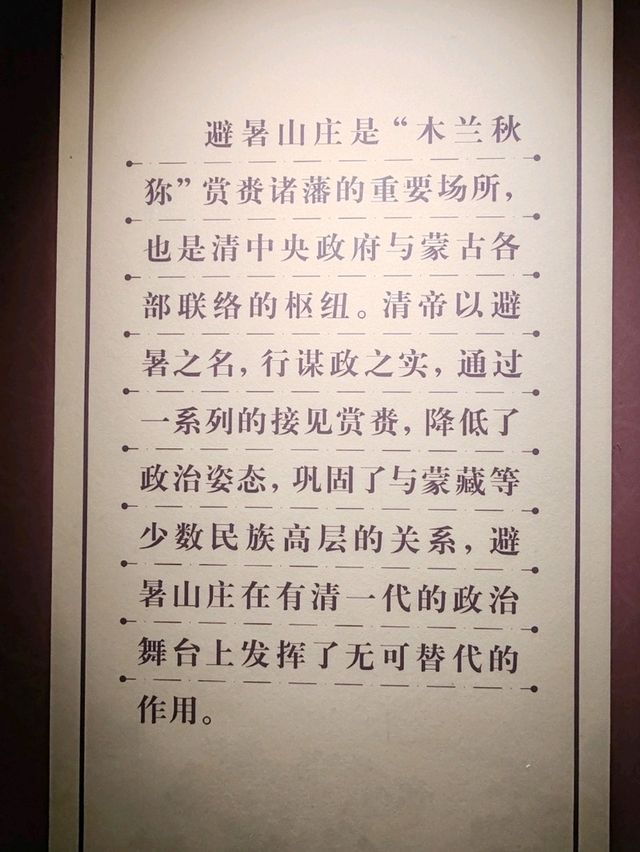 避暑山庄是“木兰秋
狝”赏赉诸藩的重要场所，
也是清中央政府与蒙古各
部联络的枢纽。清帝以避
暑之名，行谋政之实，通过
一系列的接见赏赉，降低了
政治姿态，巩固了与蒙藏等
少数民族高层的关系，避
暑山庄在有清一代的政治
舞台上发挥了无可替代的
作用。